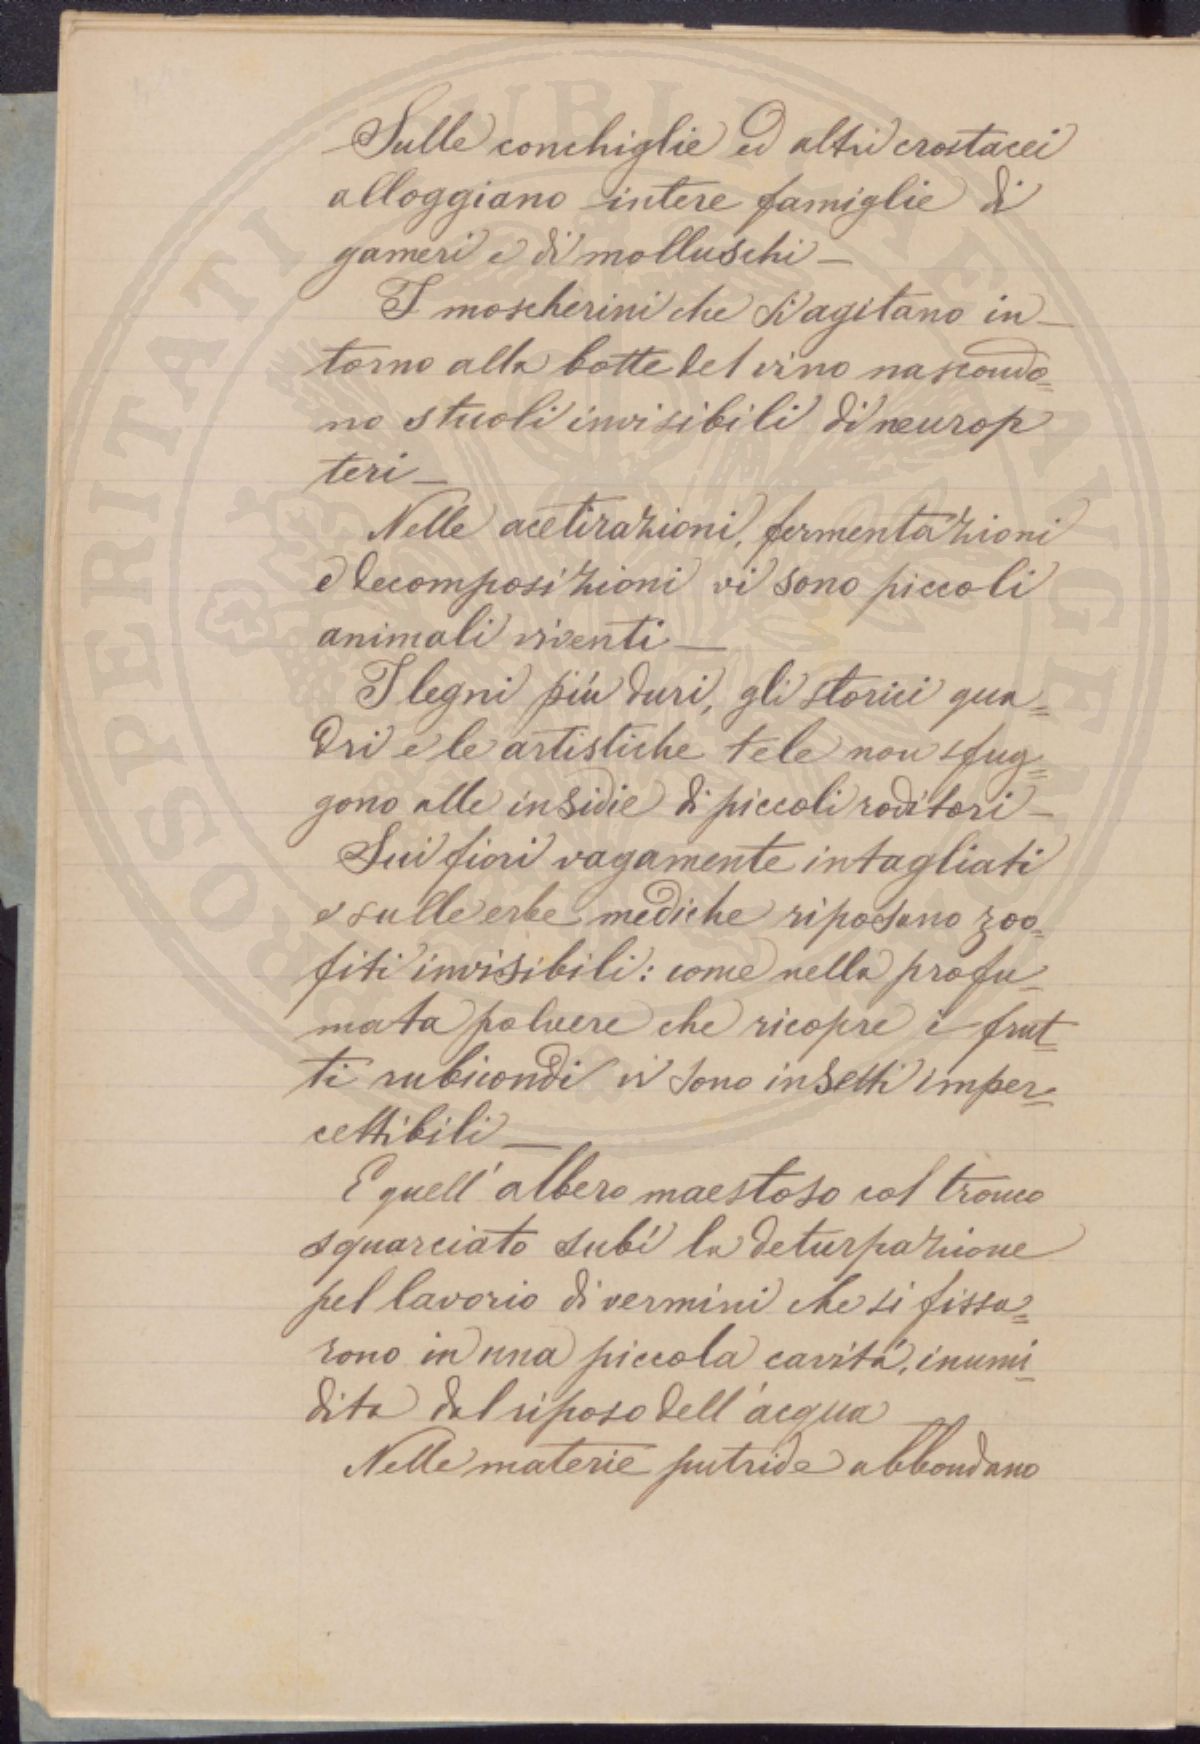 Sulle conchiglie ed altri crostacei
alloggiano intere famiglie di
gameri e di molluschi —
I moscherini che si agitano in-
torno alla botte del vino nascondo=
no stuoli invisibili di neurop
teri —
Nelle acetirazioni, fermentazioni
e decomposizioni vi sono piccoli
animali viventi —
I legni piú duri, gli storici qua=
dri e le artistiche tele non sfug=
gono alle insidie di piccoli roditori —
Sui fiori vagamente intagliati
e sulle erbe mediche riposano zoo=
fiti invisibili: come nella profu=
mata polvere che ricopre i frut=
ti rubicondi vi sono insetti imper=
cettibili —
E quell'albero maestoso col tronco
squarciato subí la deturpazione
pel lavorio di vermini che si fissa=
rono in una piccola cavitá, inumi=
dita dal riposo dell'acqua
Nelle materie putride abbondano
PROSPERITATI PUBLICAE AUGENDAE